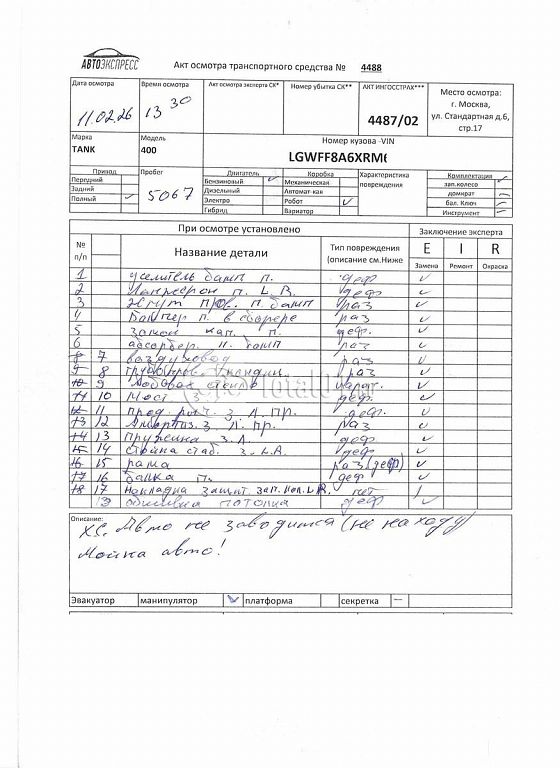 АВТОЭКСПРЕСС
Акт осмотра транспортного средства № 4488
Дата осмотра Время осмотра Акт осмотра эксперта СК* Номер убытка СК** АКТ ИНГОССТРАХ*** Место осмотра:
11.02.26 13 30 4487/02 г. Москва,
ул. Стандартная д.6,
стр.17
Марка Модель Номер кузова -VIN
TANK 400 LGWFF8A6XRM
Привод Пробег Двигатель Коробка Характеристика повреждения Комплектация
Передний 5067 Бензиновый Механическая зап.колесо
Задний Дизельный Автомат-кая домкрат
Полный Электро Робот бал. Ключ
Гибрид Вариатор Инструмент
При осмотре установлено Заключение эксперта
№ п/п Название детали Тип повреждения (описание см.Ниже E I R
Замена Ремонт Окраска
1 усилитель бамп п. деф
2 Лонжерон п. L R. деф.
3 Жгут пров. п. бамп раз
4 Бампер п. в сборе раз
5 замок кап. п. деф.
6 абсорбер. п. бамп раз
8 7 воздуховод раз
9 8 кондиц. раз
10 9 Лобовое стекло
11 10 Мост з деф.
12 11 прод. рыч. з. Л. ПР. деф.
13 12 Амортиз. з Л. ПР. раз
14 13 пружина з. Л деф
15 14 стаб. з. деф
16 15 рама раз (деф)
17 16 балка п. деф
18 17 накладка защит. нет
Э обшивка потолка деф
Описание:
Авто не заводится (не на ходу)
Мойка авто!
Эвакуатор манипулятор платформа секретка —